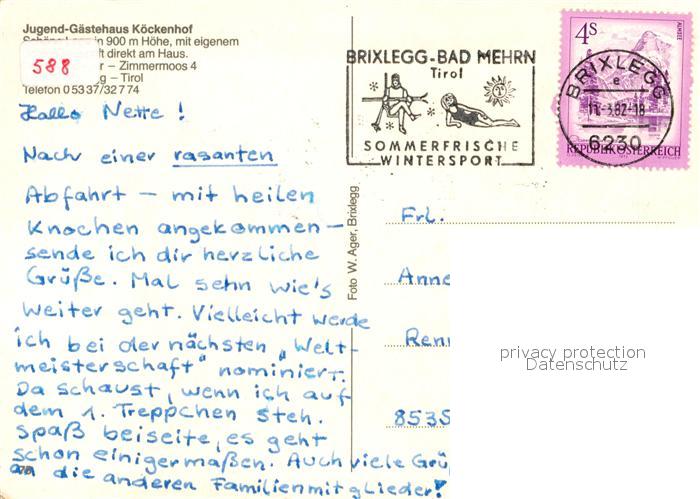 Jugend-Gästehaus Köckenhof
in 900 m Höhe, mit eigenem
ft direkt am Haus.
588
r – Zimmermoos 4
g – Tirol
Telefon 0 53 37/32 7 74
Hallo Nette!
Nach einer rasanten
Abfahrt – mit heilen
Knochen angekommen –
sende ich dir herzliche
Grüße. Mal sehn wie's
weiter geht. Vielleicht werde
ich bei der nächsten „Welt-
meisterschaft" nominiert.
Da schaust, wenn ich auf
dem 1. Treppchen steh.
Spaß beiseite, es geht
schon einigermaßen. Auch viele Grü
an die anderen Familienmitglieder!
Foto W. Ager, Brixlegg
BRIXLEGG-BAD MEHRN
Tirol
SOMMERFRISCHE
WINTERSPORT
4S
ALMSEE
REPUBLIK ÖSTERREICH
BRIXLEGG
e
3.82-18
6230
Frl.
Anne
Renn
8535
privacy protection
Datenschutz